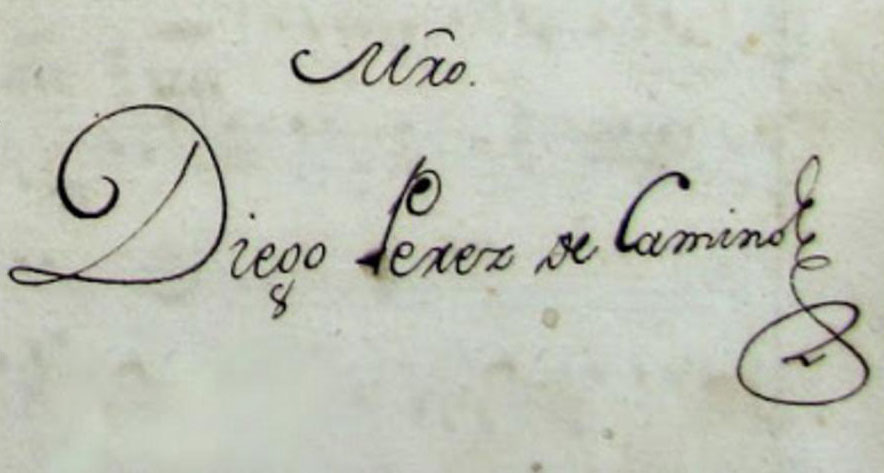 Mr̃o.
Diego Perez de Camino